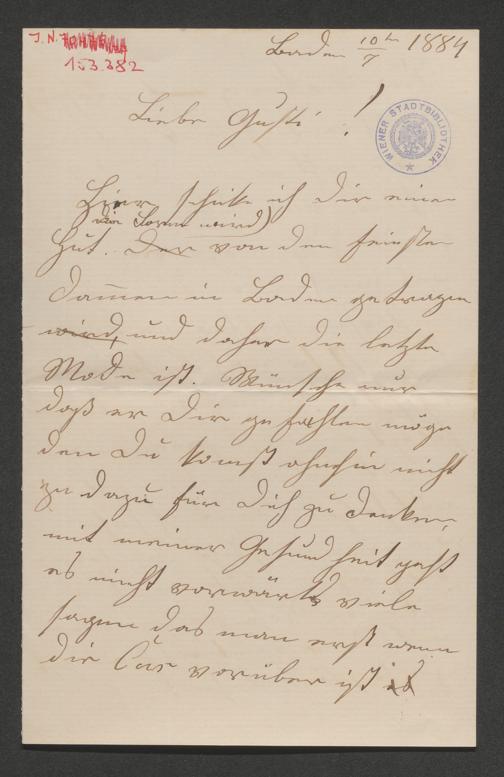 J. N.
153.382
Baden 10/7 1884
WIENER STADTBIBLIOTHEK
Liebe Gusti!
Hier schike ich Dir einen
(die Form wird)
Hut. Der von den feinsten
Dammen in Baden getragen
wird, und daher die letzte
Mode ist. Wünsche nur
daß er Dir gefahlen möge
den Du komst ohnehin nicht
zu dazu für Dich zu denken,
mit meiner Gesundheit geht
es nicht vorwärts viele
sagen das man erst wenn
die Cur vorüber ist